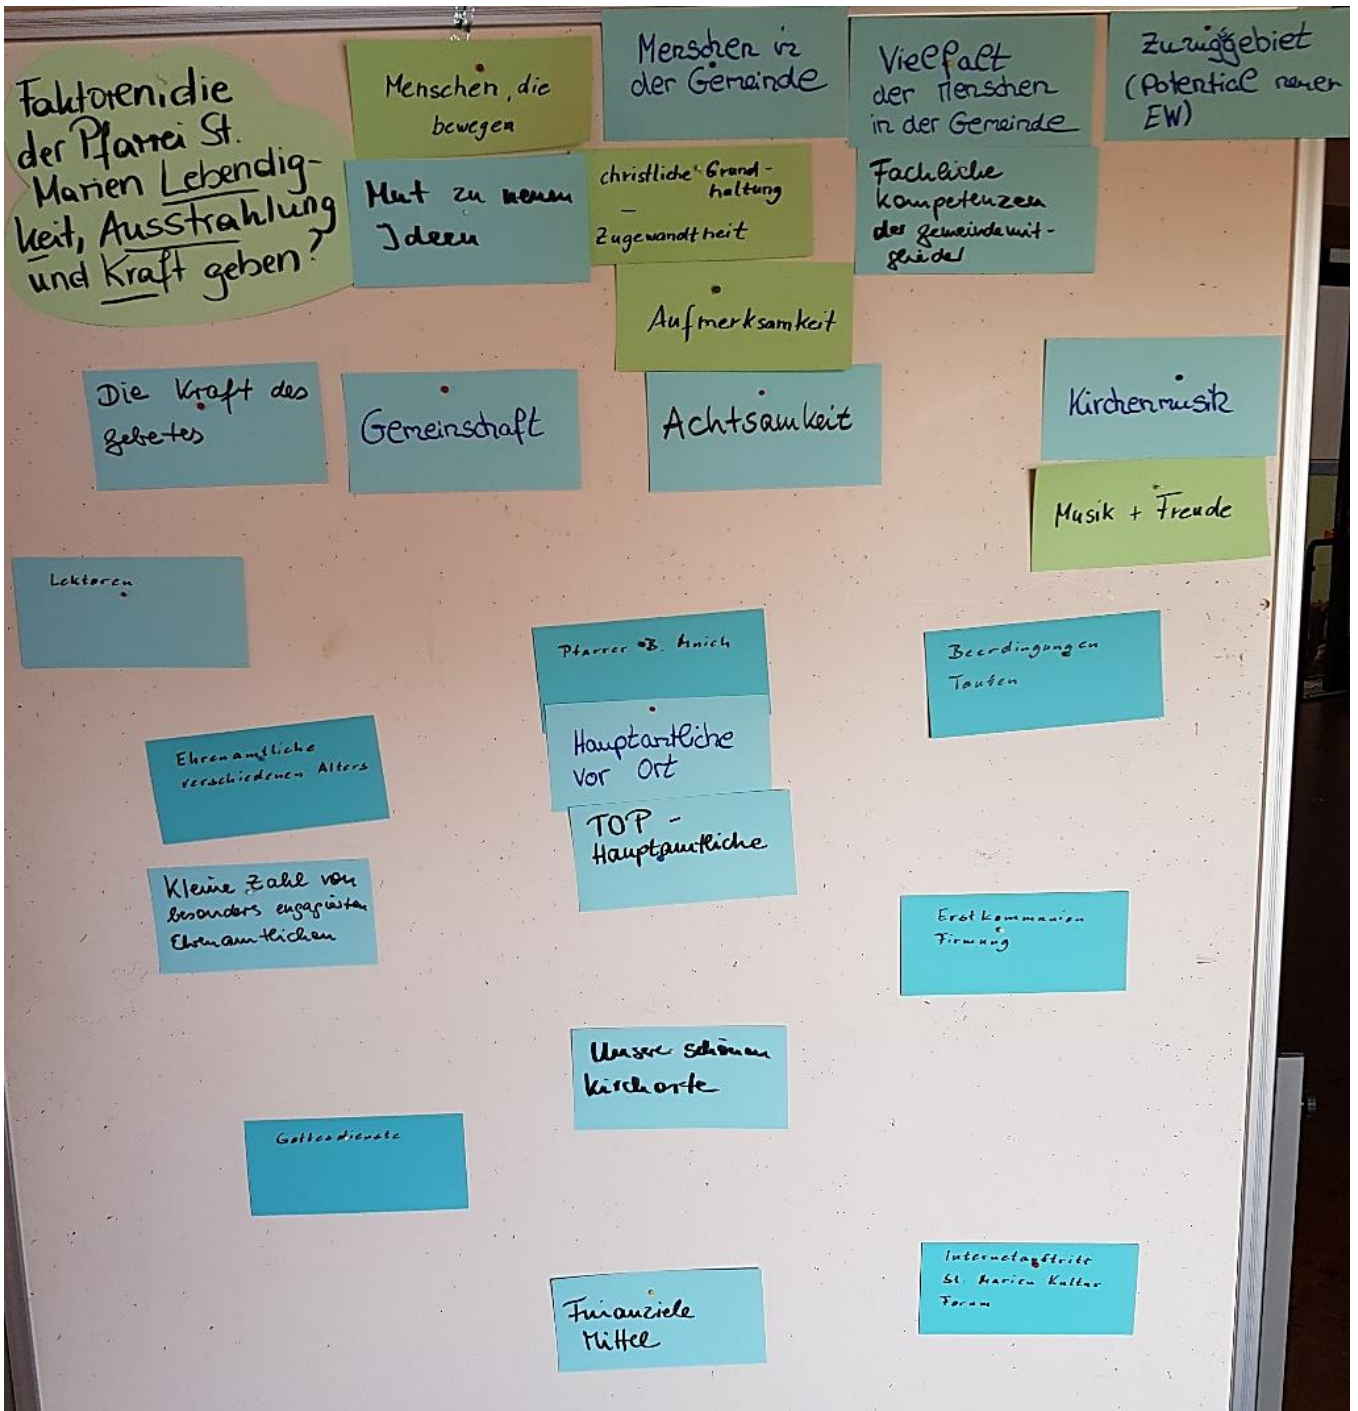 Faktoren, die
der Pfarrei St.
Marien Lebendig-
keit, Ausstrahlung
und Kraft geben?
Menschen, die
bewegen
Menschen in
der Gemeinde
Vielfalt
der Menschen
in der Gemeinde
Zuzuggebiet
(Potential neuer
EW)
Mut zu neuen
Ideen
christliche Grund-
haltung
–
Zugewandtheit
Fachliche
Kompetenzen
der Gemeindemit-
glieder
Aufmerksamkeit
Die Kraft des
Gebetes
Gemeinschaft
Achtsamkeit
Kirchenmusik
Musik + Freude
Lektoren
Pfarrer B.
Beerdingungen
Taufen
Ehrenamtliche
verschiedenen Alters
Hauptamtliche
vor Ort
TOP -
Hauptamtliche
Kleine Zahl von
besonders engagierten
Ehrenamtlichen
Erstkommunion
Firmung
Unsere schönen
Kirchorte
Gottesdienste
Internetauftritt
St. Marien Kultur
Forum
Finanziele
Mittel